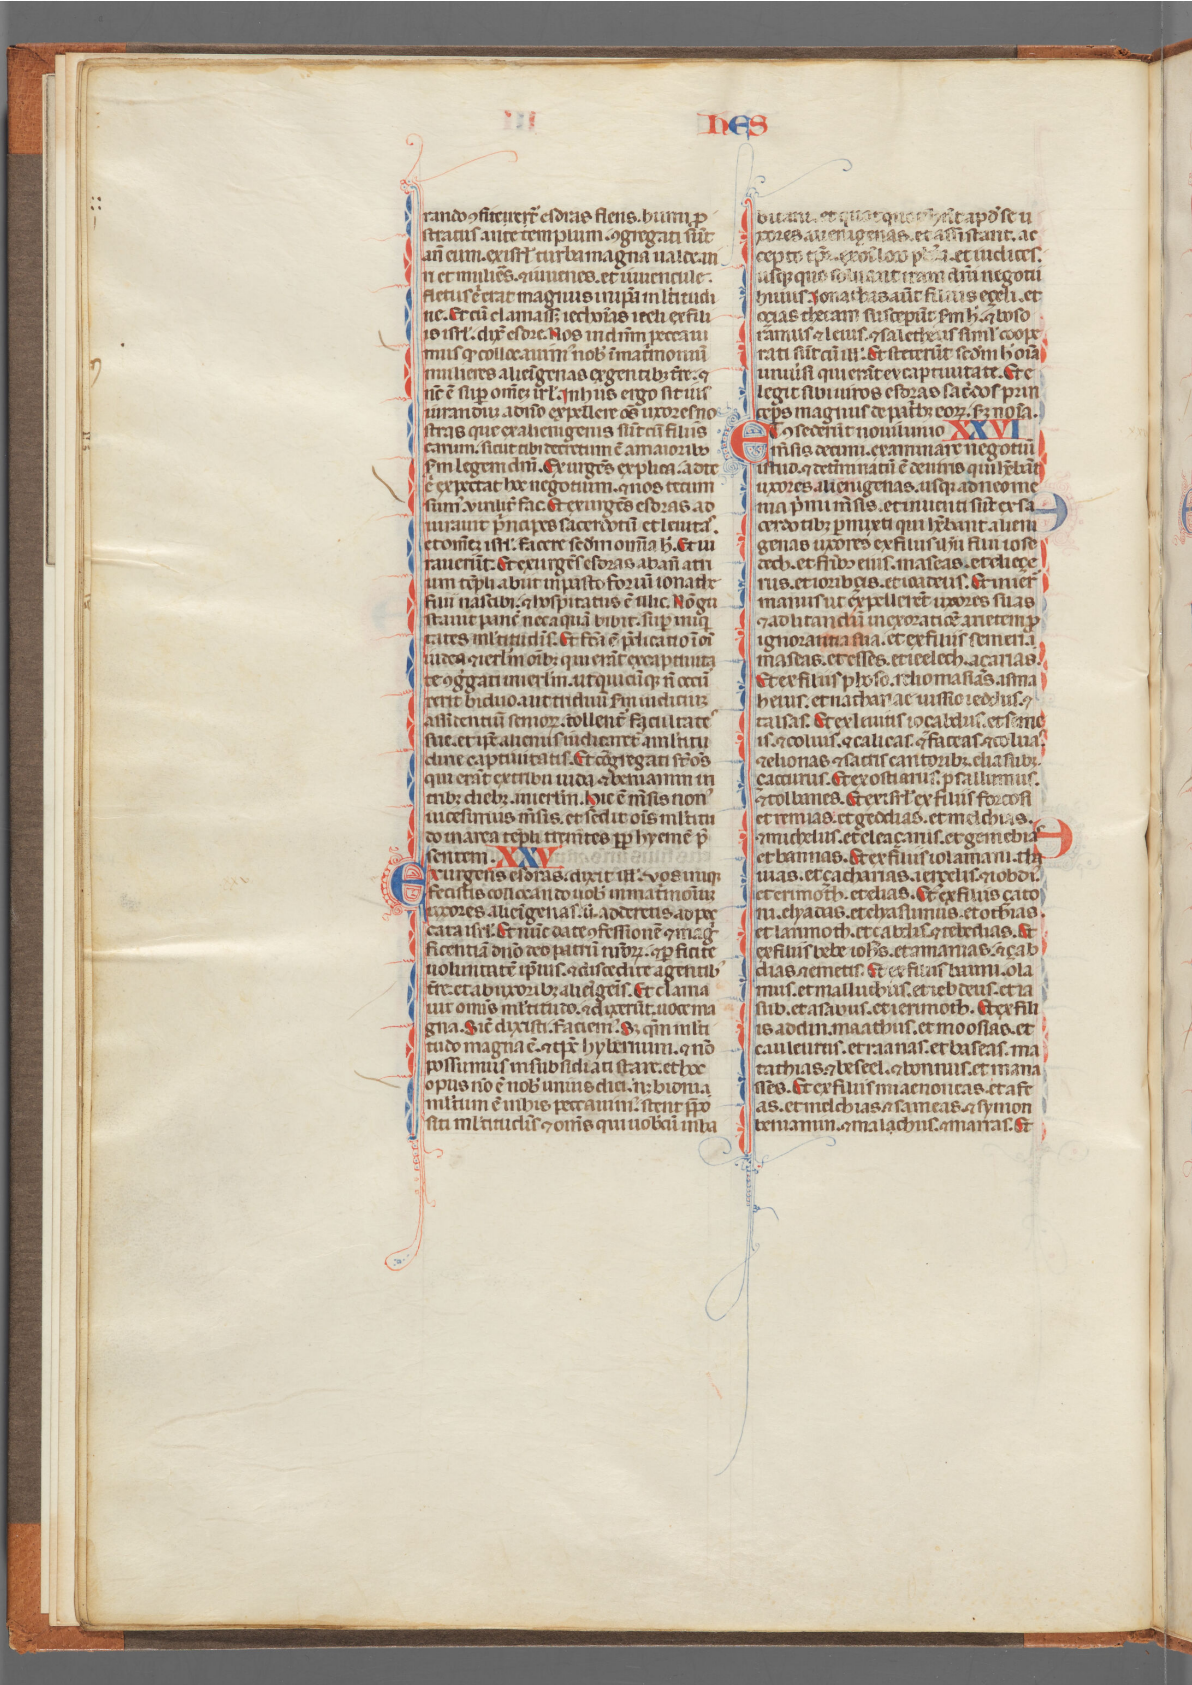 hES
rando ꝯfiteret᷑ esdras flens. humi ꝓ
stratus ante templum. ꝯgregati sūt
añ eum. ex isrl̄ turba magna ualde. ui
ri et mulieˢ. ⁊ iuuenes. et iuuencule.
fletus .n. erat magnus in ip̄a ml̄titudi
ne. Et cū clamass᷑ iechonias ieeli ex fili
is isrl̄. dix̄ esdre. Nos in dn̄m peccaui
mus qͥ collocauimꝰ nob̄ ī mat̄moniū
mulieres alieīgenas ex gentibꝫ tr̄e. ⁊
nc̄ ē suꝑ omēꝫ isrl̄. In hiis ergo sit uis
iurandū a dn̄o expellere oēs uxores no
stras que ex alienigenis sūt cū filiis
earum. sicut tibi decretum ē a maioribꝫ
sm̄ legem dn̄i. Exurgēs explica. ad te
.n. expectat hoc negotium. ⁊ nos tecum
sumꝰ. uiriliꝉ fac. Et exurgēs esdras ad
iurauit p̄ncipes sacerdotū et leuitas.
et omēꝫ isrl̄. facere scdm̄ omīa h̄. Et iu
rauerūt. Et exurgēs esdras ab añ atri
um tēpli abiit in pastoforiū ionathe
filii nasabi. ⁊ hospitatus ē illic. Nō gu
stauit panē nec aquā bibit. suꝑ iniq̄
tates ml̄titudīs. Et fc̄a ē p̄dicatio ī oī
iudea ⁊ ierl̄m oībꝫ qui erāt ex captiuita
te ꝯgͤgati in ierl̄m. ut quicūqꝫ n̄ occū
rerit biduo. aut triduū sm̄ iudiciū
assidentiū senioꝝ. tollentᷣ facultateˢ
sue. et ip̄e alienus iudicaretᷣ a ml̄titu
dine captiuitatis. Et cōgregati sūt oēs
qui erāt ex tribu iuda. ⁊ beniamin in
tribꝫ diebꝫ. in ierl̄m. hic ē m̄sis nonꝰ
uicesimus m̄sis. et sedit oīs ml̄titu
do in area tēpli tremētes ꝓp̄ hyemē p̄
sentem. XXV
Exurgēs esdras. dixit ill̄. Uos iniqͤ
fecistis collocando uob̄ in matͥmoniū
uxores alieīgenas. ut adderetis ad pec
cata isrl̄. Et nūc date ꝯfessionē ⁊ mag̅
ficentiā dn̄o deo patrū nr̄oꝝ. ⁊ ꝑficite
uoluntatē ip̄ius. ⁊ discedite a gentibꝫ
tr̄e. et ab uxoribꝫ alieīgeīs. Et clama
uit omīs ml̄titudo. ⁊ dixerūt. uoce ma
gna. Sic̄ dixisti. faciemꝰ. Sꝫ qm̄ ml̄ti
tudo magna ē. ⁊ tp̄s hybernum. ⁊ nō
possumus insubsidiati stare. et hoc
opus nō ē nob̄ unius diei. nꝫ bidui a
ml̄tum .n. in hiis peccauimꝰ. stent p̄po
siti ml̄titudīs ⁊ omēs qui uobcū inha
bitant. et quotquot hn̄t apᵈ se u
xores alienigenas. et assistant. ac
cepto tp̄r. ex oī loco p̄bri. et iudices.
usqꝫ quo soluant iram dn̄i negotii
huius. Ionathas aūt filius eçeli. et
oçias thecam susceperūt sm̄ h̄. ⁊ boso
ramus ⁊ leuis. ⁊ satetheus siml̄ coope
rati sūt cū ill̄. Et steterūt scdm̄ h̄ oīa
uniūsi qui erāt ex captiuitate. Et e
legit sibi uiros esdras sac̄dos prin
ceps magnus de patͥbꝫ eoꝝ. sꝫ noīa.
Et ꝯsederūt nouilunio XXVI
m̄sis decimi. examinare negotiū
istud. ⁊ detͥminatū ē de uiris qui hēbāt
uxores alienigenas. usqꝫ ad neome
nia pͥmi m̄sis. et inuenti sūt ex sa
cerdotibꝫ ꝑmixti qui hēbant alieni
genas uxores ex filiis ih̄u filii iose
dech. et fr̄ibꝫ eius. maseas. et elieçe
rus. et ioribꝫeus. et ioadeus. Et inicer̄
manus ut expellerēt uxores suas
⁊ ad litandū in exoratiōe arietem ꝓ
ignorantia sua. et ex filiis semeri. i
maseas. et esses. et ieelech. açarias.
Et ex filiis phoso. relio masias. isma
helus. et nathanae iussio ieddus. ⁊
talsas. Et ex leuitis ioçabdus. et seme
is. ⁊ coluis. ⁊ calitas. ⁊ faceas. ⁊ colua.
⁊ elionas ⁊ sacris cantoribꝫ. eliasubꝫ.
çaccurus. Et ex ostiariis. psallumus.
⁊ tolbanes. Et ex isrl̄ ex filiis forcosi
et remias. et geddias. et melchias.
⁊ michelus. et eleaçarus. et gemebia
et bannas. Et ex filiis iolamani. cha
mas. et çacharias. ieerçelis. ⁊ iobdi.
et erimoth. et elias. Et ex filiis çato
ni. elyadas. et eliasimus. et othias.
et larimoth. et çabdis. ⁊ tebedias. Et
ex filiis bebe iohs̄. et amanias. ⁊ çab
dias ⁊ emeus. Et ex filiis banni. ola
mus. et malluchus. et ieddeus. et ia
sub. et asabus. et ierimoth. Et ex fili
is addin. maathus. et moosias. et
caulenus. et raanas. et baseas. ma
tathias. ⁊ beseel. ⁊ bonnus. et mana
sses. Et ex filiis nuae noneas. et ase
as. et melchias ⁊ sameas. ⁊ symon
beniamin. ⁊ malachus. ⁊ marias. Et